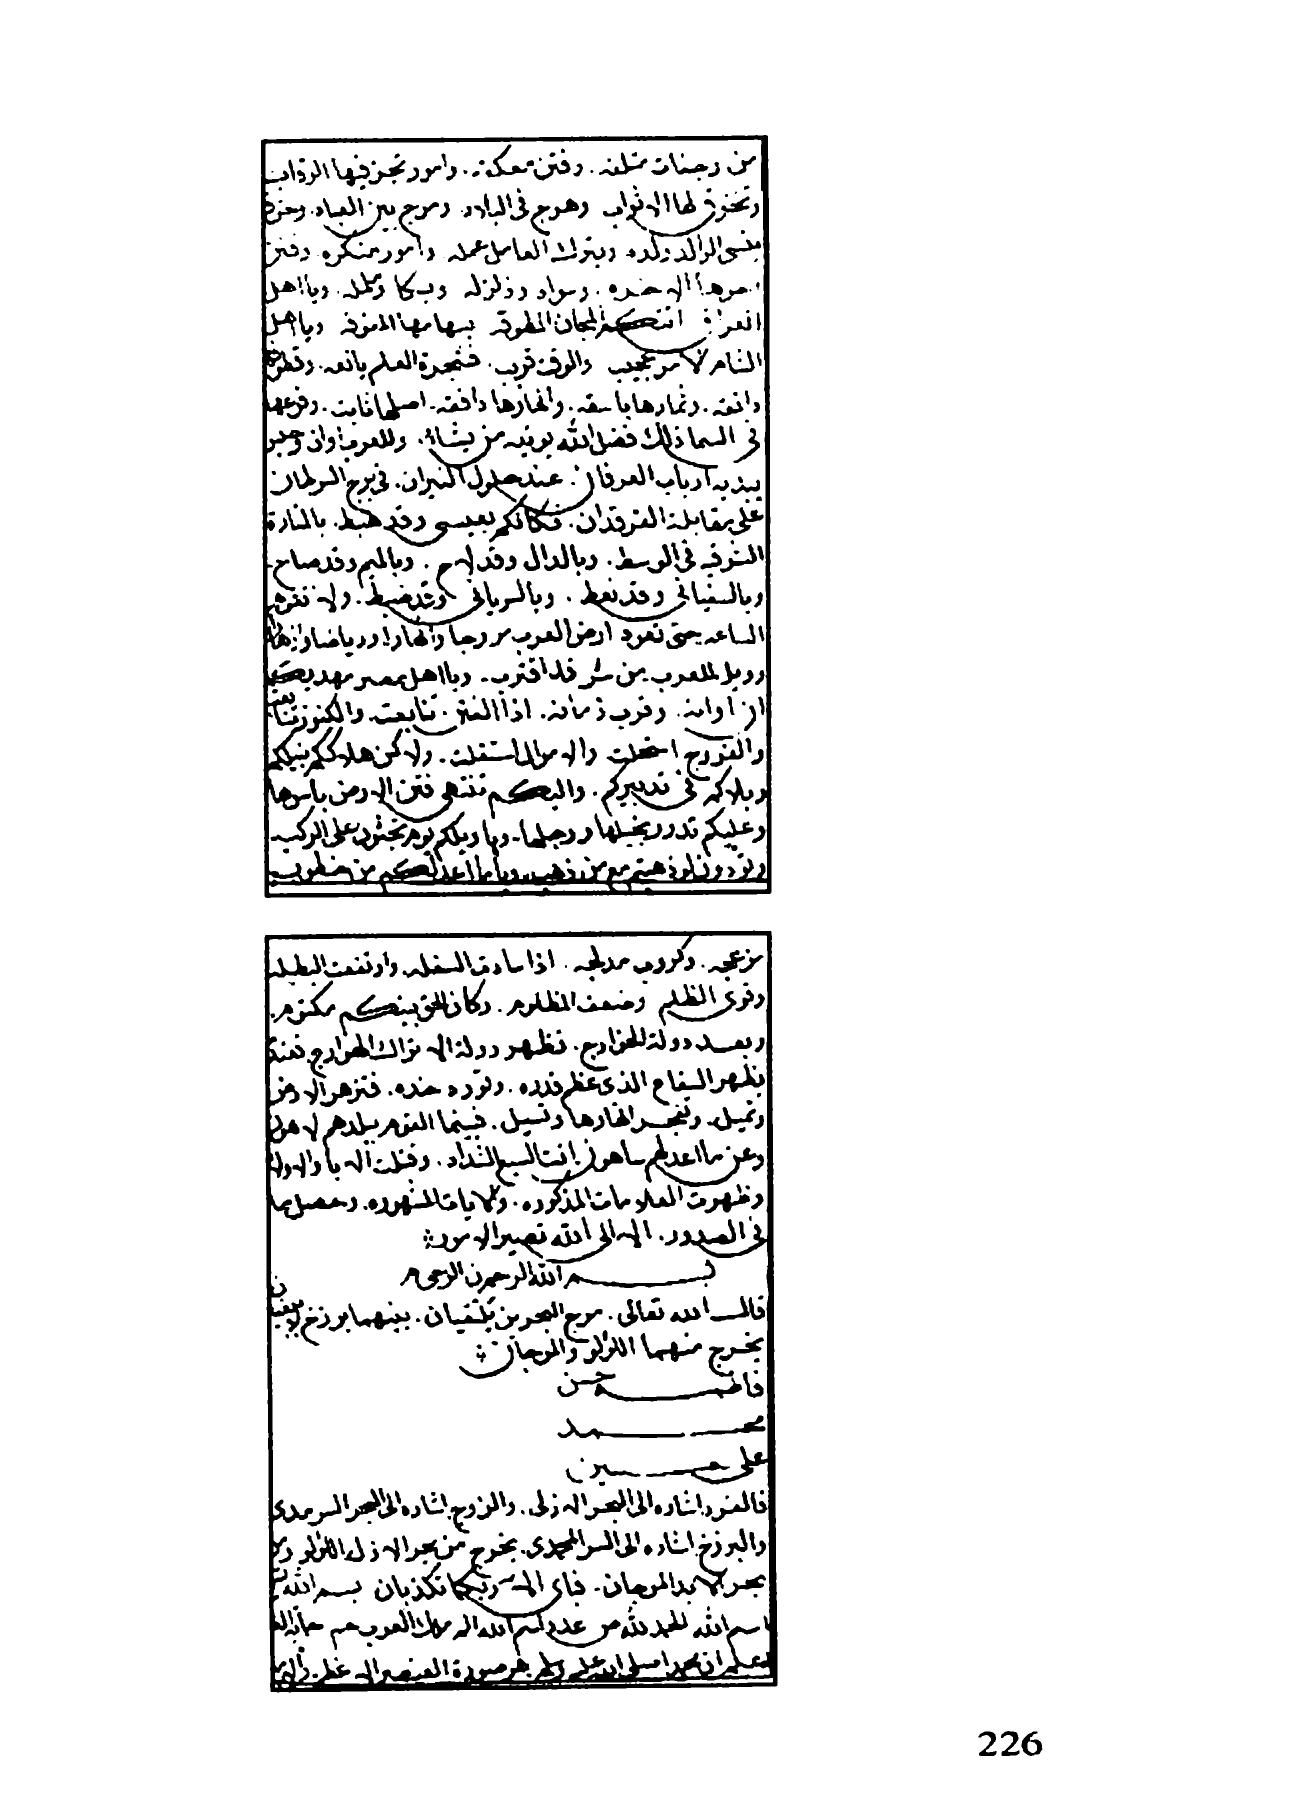 من وجنات متلفه. وفتن مهلكة. وامور تجز فيها الرقاب
وتخرق لها الاثواب وهرج في البلاد. ومرج بين العباد. وحزن
ينسى الوالد ولده ويترك العامل عمله وامور منكره وفتن
وسواد وزلزله وبكا وململه. ويا اهل
العراق المجان المطوقه بسهامها ويا اهل
الشام لامر عجيب والوقت قريب. فشجرة العلم يانعه.
دانعه. وثمارها باسقه. وانهارها دافقه. اصلها ثابت. وفرعها
في السما ذلك فضل الله يوتيه من يشاء. وللعرب اوان وحين
ارباب العرفان. عند حلول النيران. في برج السرطان
على مقابلة الفرقدان. فكانكم بعيسى وقد هبط. بالمنارة
الشرقيه في الوسط. وبالدال وقد لاح. وبالميم وقد صاح.
وبالسفياني وقد نعط. وبالسرياني وقد ضبط. ولا تقوم
الساعه حتى تعود ارض العرب مروجا وانهارا ورياضا وازهارا
وويل للعرب من شر قد اقترب. ويا اهل مصر مهديكم
ان اوانه. وقرب زمانه. اذا الفتن تتابعت. والكنوز تتابعت
والفروج استحلت والاموال استقلت. ولاكن هلاككم بنيلكم
وبلاكم في تدبيركم. واليكم تنتهي فتن الارض باسرها
وعليكم تدور بخيلها ورجلها. ويا ويلكم يوم تجثون على الركب.
وتودون لو ذهبتم مع من ذهب. ويا ما اعد لكم من خطوب
مزعجه. وكروب مدلجه. اذا سادت السفله. وارتفعت البطله
وقوى الظلم وضعف المظلوم. وكان الحق بينكم مكتوم.
وبعد دولة الخوارج. تظهر دولة الاتراك الخوارج. فعند
يظهر السفاح الذى عظم قدره. وتورد خده. فتزهر الارض
وتميل. وتفجر انهارها وتسيل. فبينما القوم ببلدهم لاهون
وعن ما اعد لهم ساهون اتت السبع الشداد. وقتلت الابا والاولاد
وظهرت العلامات المذكوره. والايات المشهوره. وحصل ما
في الصدور. الا الى الله تصير الامور
بسم الله الرحمن الرحيم
قال الله تعالى. مرج البحرين يلتقيان. بينهما برزخ لا يبغيان
يخرج منهما اللؤلو والمرجان
فاطمه حسن
محمد
على حسين
فالفرد اشاره الى البحر الازلى. والزوج اشاره الى البحر السرمدى
والبرزخ اشاره الى السر المحمدى. يخرج من بحر الازل اللؤلو ومن
بحر الابد المرجان. فباى الاء ربكما تكذبان بسم الله
باسم الله الحمد لله من عدد اسم الله العرب حم
اعلم ان محمدا صلى الله عليه وسلم هو صورة العنصر الاعظم